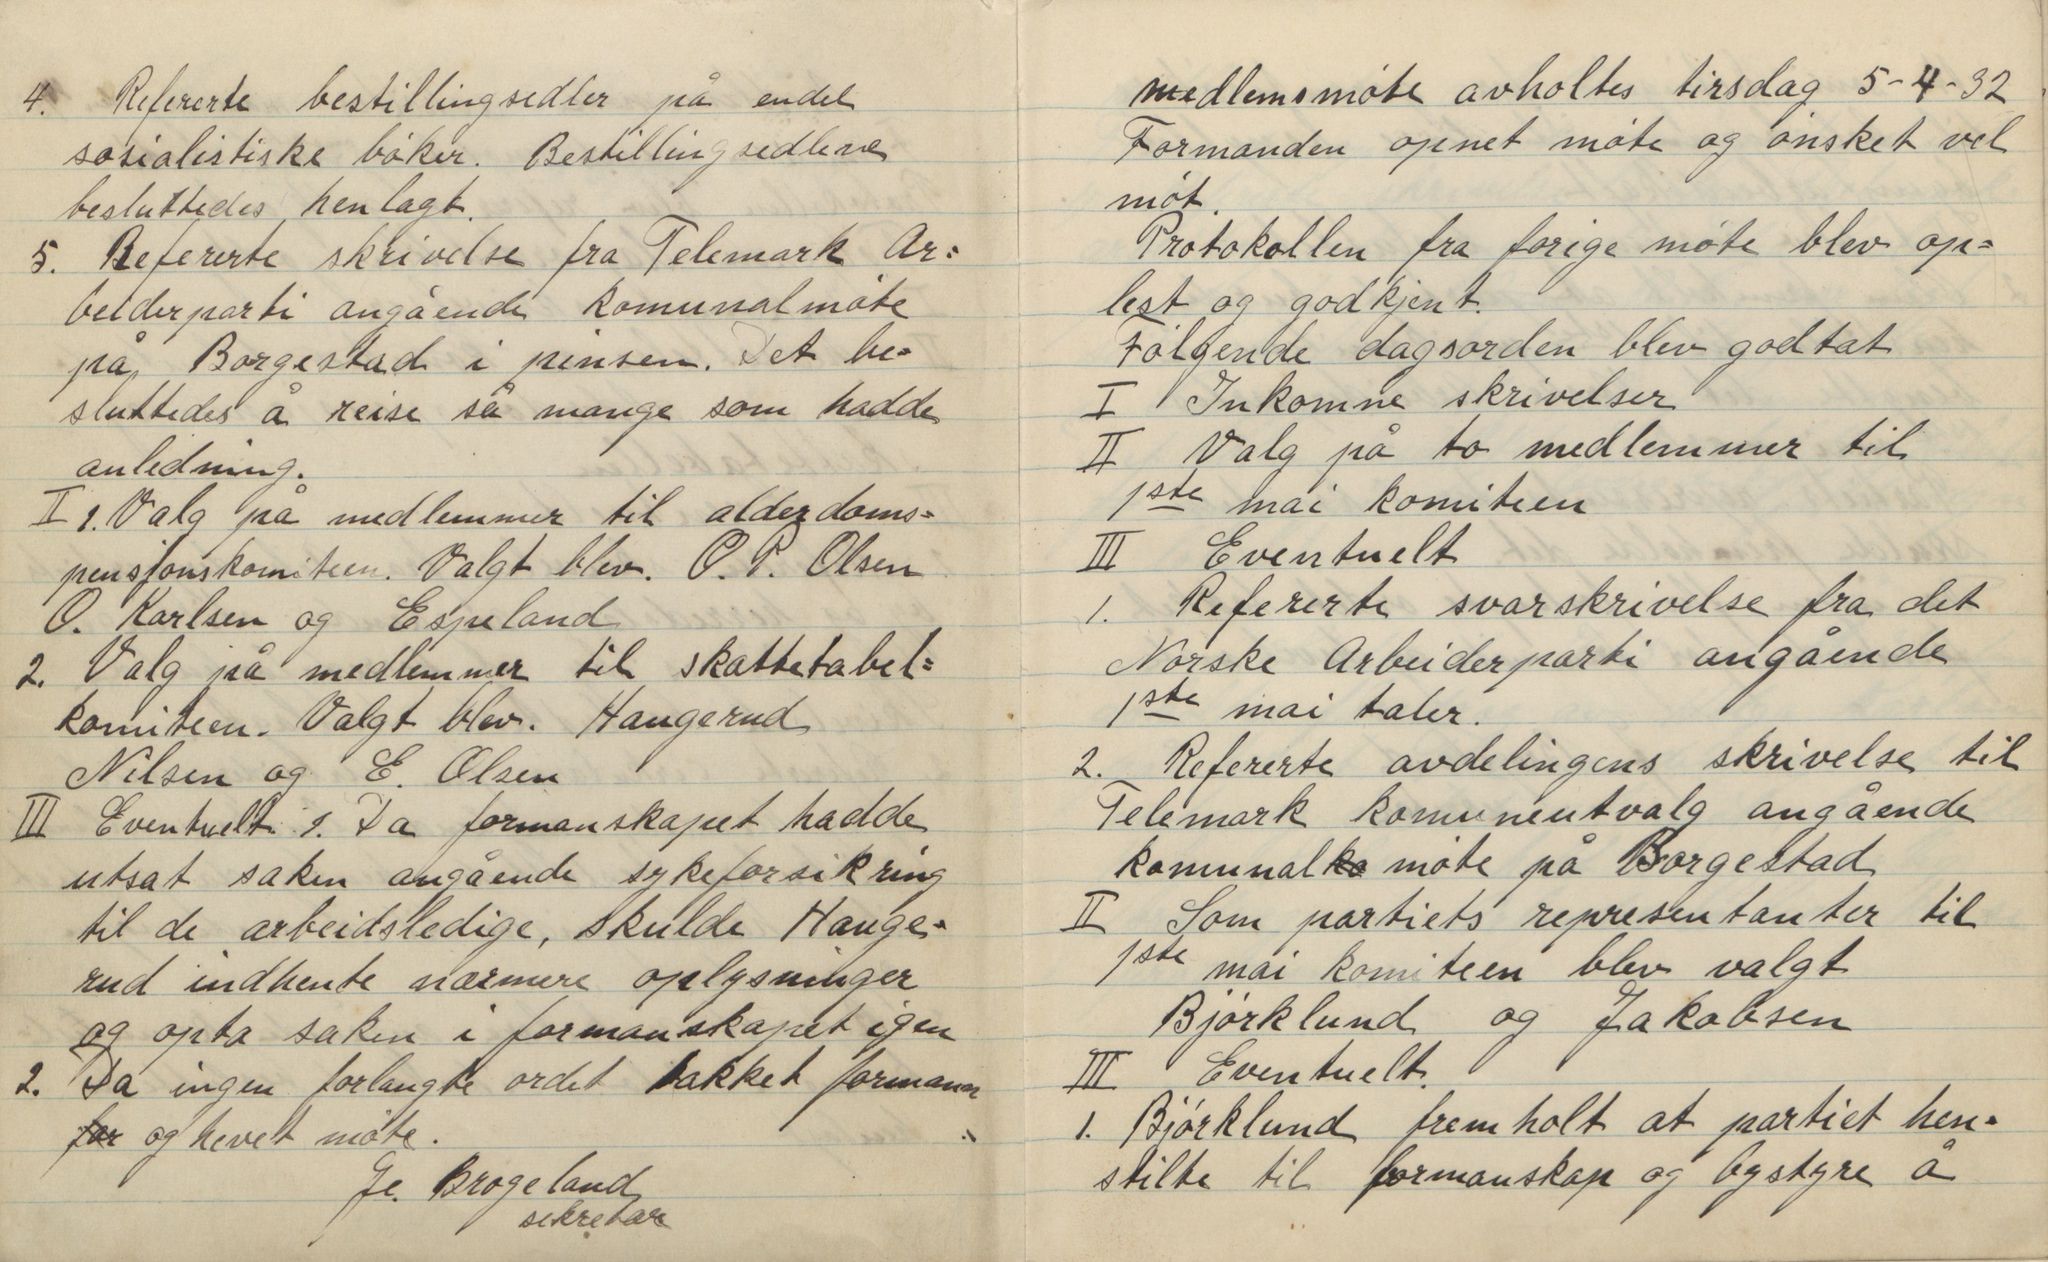 4. Refererte bestillingsedler på endel
sosialistiske bøker. Bestillingsedlene
besluttedes henlagt.
5. Refererte skrivelse fra Telemark Ar=
beiderparti angående komunalmøte
på Borgestad i pinsen. Det be=
sluttedes å reise så mange som hadde
anledning.
II 1. Valg på medlemmer til alderdoms=
pensjonskomiteen. Valgt blev. O. P. Olsen
O. Karlsen og Espeland
2. Valg på medlemmer til skattetabel=
komiteen. Valgt blev. Haugerud
Nilsen og E. Olsen
III Eventuelt. 1. Da formanskapet hadde
utsat saken angående sykeforsikring
til de arbeidsledige, skulde Hauge=
rud indhente nærmere oplysninger
og opta saken i formanskapet igen
2. Da ingen forlangte ordet takket formann
for og hevet møte.
Je. Brogeland
sekretær
medlemsmøte avholtes tirsdag 5-4-32
Formanden opnet møte og ønsket vel
møt.
Protokollen fra forige møte blev op=
lest og godkjent.
Følgende dagsorden blev godtat
I Inkomne skrivelser
II Valg på to medlemmer til
1ste mai komiteen
III Eventuelt
1. Refererte svarskrivelse fra det
Norske Arbeiderparti angående
1ste mai taler.
2. Refererte avdelingens skrivelse til
Telemark komuneutvalg angående
komunalko møte på Borgestad
II Som partiets representanter til
1ste mai komiteen blev valgt
Bjørklund og Jakobsen
III Eventuelt.
1. Bjørklund fremholt at partiet hen=
stilte til formanskap og bystyre å